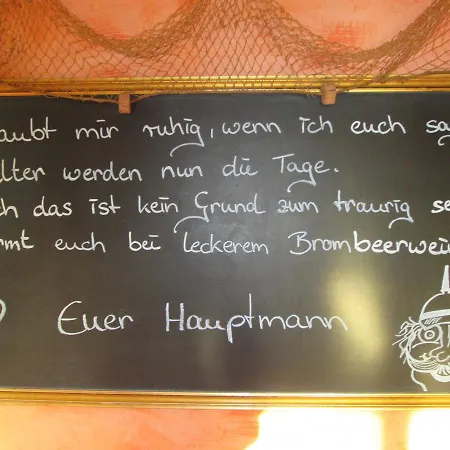 laubt mir ruhig, wenn ich euch sa
älter werden nun die Tage.
ch das ist kein Grund zum traurig se
rmt euch bei leckerem Brombeerwei
Euer Hauptmann